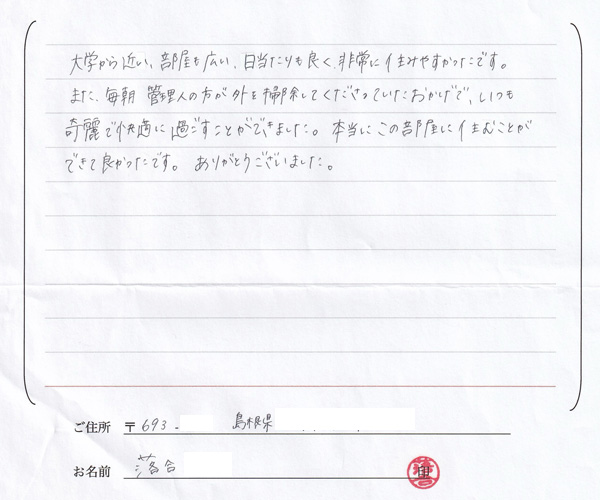 大学から近い、部屋も広い、日当たりも良く、非常に住みやすかったです。
また、毎朝 管理人の方が外を掃除してくださっていたおかげで、いつも
奇麗で快適に過ごすことができました。本当にこの部屋に住むことが
できて良かったです。ありがとうございました。
ご住所 〒693- 島根県
お名前 落合